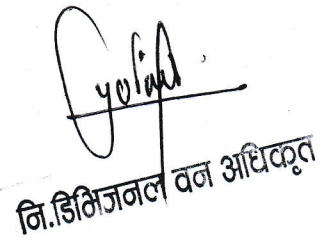 नि.डिभिजनल वन अधिकृत